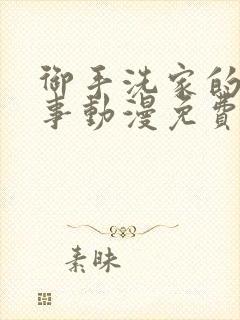 御手洗家的
事動漫免費
素昧